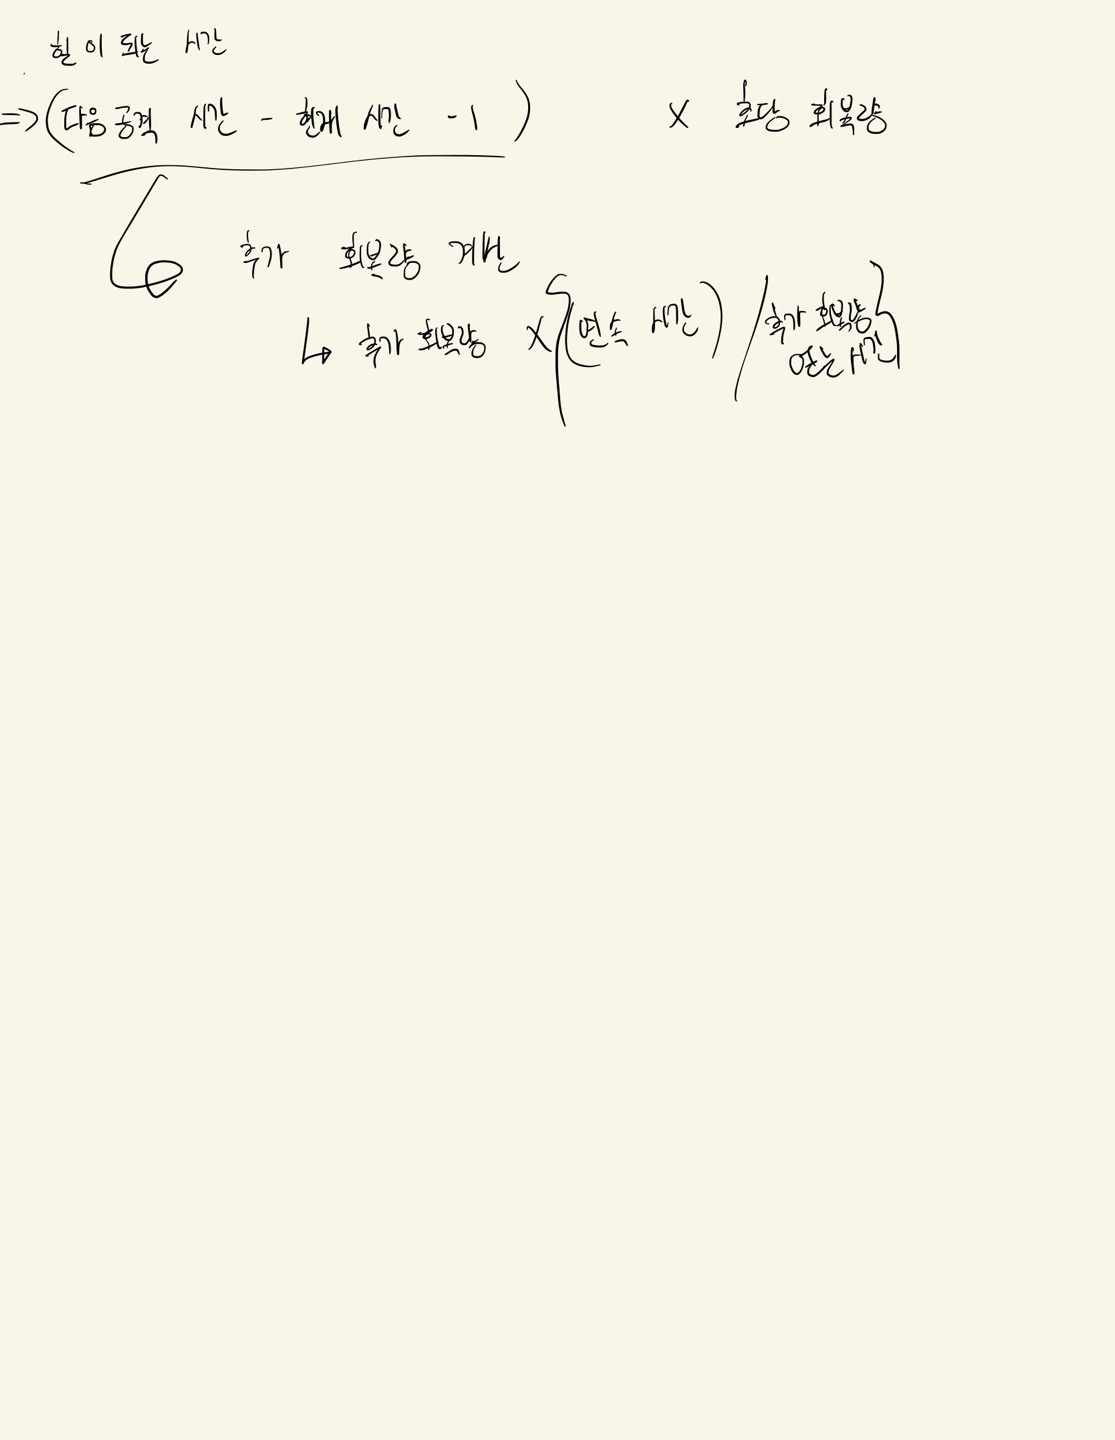 힐이 되는 시간
=> (다음공격 시간 - 현재 시간 -1) x 초당 회복량
추가 회복량 계산
↳ 추가 회복량 x {(연속 시간) / 추가 회복량 얻는 시간}